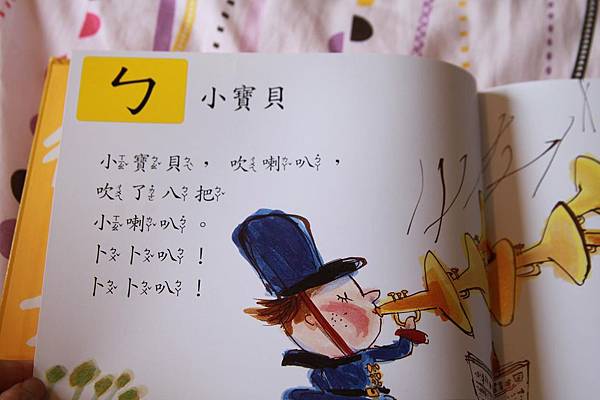 ㄅ
小寶貝
小寶貝，吹喇叭，
吹了八把
小喇叭。
卜卜叭！
卜卜叭！